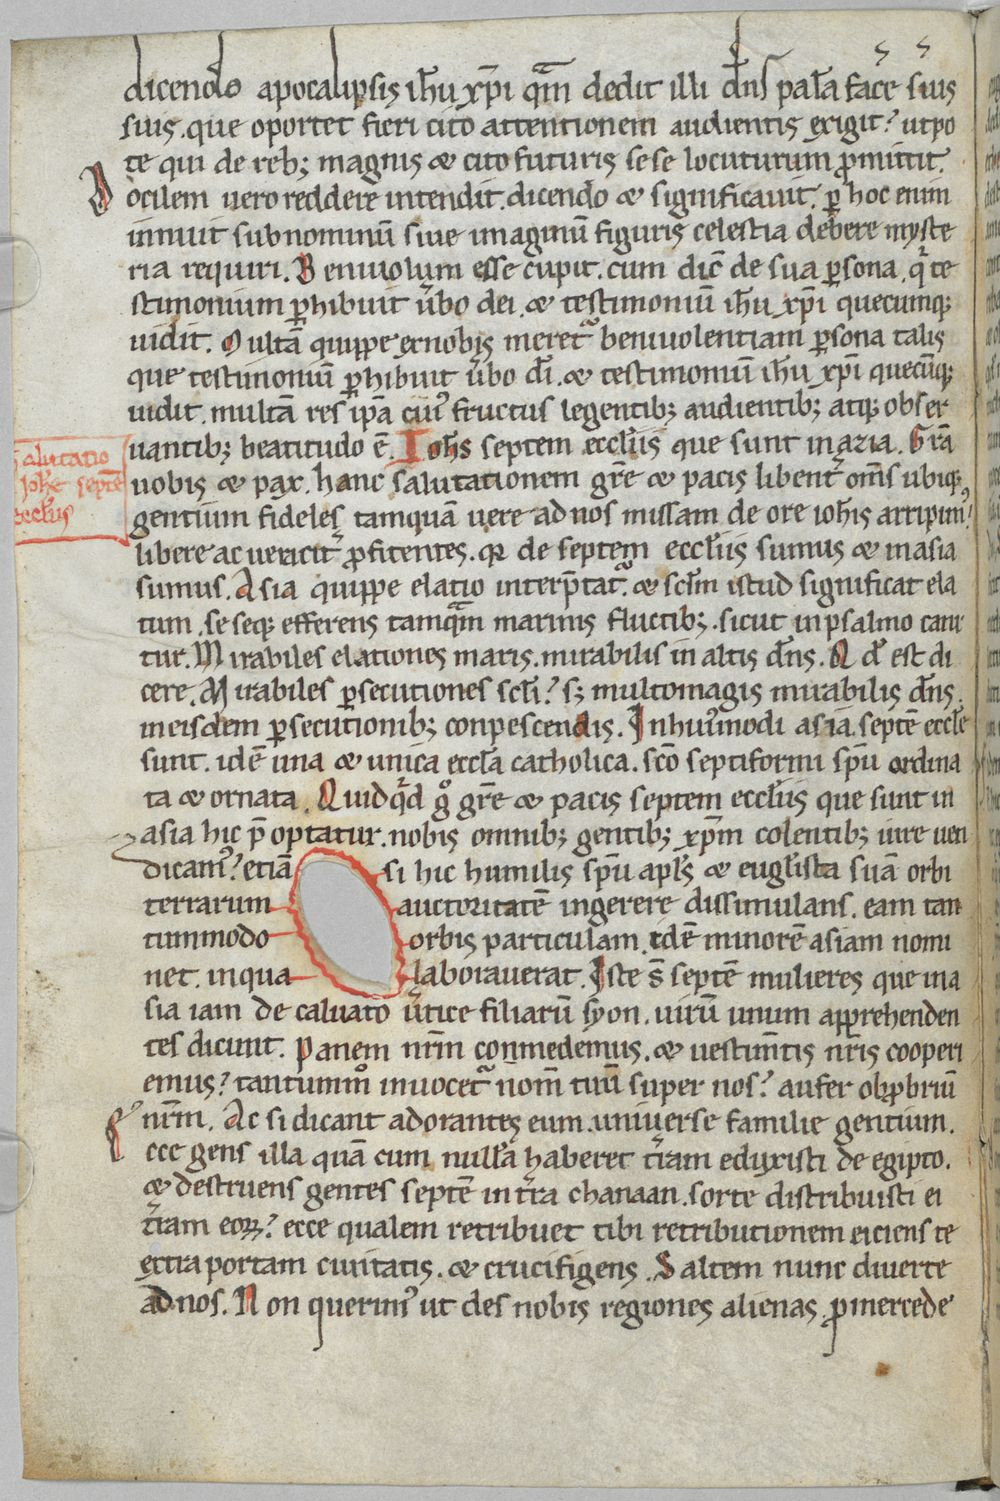 dicendo apocalipsis ih̅u xp̅i qua̅m dedit illi dn̅s pala̅ face̅ suis
suis. que oportet fieri cito attentionem audientis exigit? utpo
te qui de reb; magnis & cito futuris sese locuturum ꝓmittit.
Docilem uero reddere intendit. dicendo & significauit. ꝑ hoc enim
innuit sub nominu̅ siue imaginu̅ figuris celestia debere myste
ria requiri. Beniuolum esse cupit. cum dic̅ de sua ꝑsona. q̅ te
stimonium ꝑhibuit u̅bo dei. & testimoniu̅ ih̅u xp̅i quecumq;
uidit. Multa̅ quippe et nobis meret᷑ beniuolentiam ꝑsona talis
que testimoniu̅ ꝑhibuit u̅bo di̅. & testimoniu̅ ih̅u xp̅i quecu̅q;
uidit. multa̅ res ip̅a cui᷒ fructus legentib; audientib; atq; obser
uantib; beatitudo e̅. Ioh̅s septem eccl̅iis que sunt in azia. Gr̅a
Salutatio
Joh̅is septe̅
eccl̅iis
uobis & pax. hanc salutationem gr̅e & pacis libent᷑ om̅s ubiq;
gentium fideles tamqua̅ uere ad nos missam de ore ioh̅is arripim᷒?
libere ac ueracit᷑ ꝓfitentes. qꝛ de septem eccl̅iis sumus & in asia
sumus. Asia quippe elatio interp̅tat᷑. & scl̅m istud significat ela
tum. se seq; efferens tamqua̅m marinis fluctib;. sicut in psalmo cani
tur. Mirabiles elationes maris. mirabilis in altis dn̅s. Q d̅ est di
cere. Mirabiles ꝑsecutiones scl̅i? s; multo magis mirabilis dn̅s.
in eisdem ꝑsecutionib; conpescendis. In hui᷒modi asia. septe̅ eccl̅e
sunt. ide̅ una & unica eccl̅a catholica. sc̅o septiformi sp̅u ordina
ta & ornata. Quidq̅d g̊ gr̅e & pacis septem eccl̅iis que sunt in
asia hic p̅ optatur. nobis omnib; gentib; xp̅m colentib; iure uen
dicam᷒? etia̅ si hic humilis sp̅u apl̅s & eugl̅ista sua̅ orbi
terrarum auctoritate̅ ingerere dissimulans. eam tan
tummodo orbis particulam. ide̅ minore̅ asiam nomi
net. in qua laborauerat. Iste s̅ septe̅ mulieres que in a
sia iam de caluato u̅tice filiaru̅ syon. uiru̅ unum apprehenden
tes dicunt. Panem nr̅m conmedemus. & uestim̅tis nr̅is cooperi
emus? tantumm̊ inuocet᷑ nom̅ tuu̅ super nos? aufer obꝓbriu̅
nr̅m. Ac si dicant adorantes eum. uniuerse familie gentium.
Ecce gens illa qua̅ cum nulla̅ haberet t̅ram eduxisti de egipto.
& destruens gentes septe̅ in t̅ra chanaan. sorte distribuisti ei
t̅ram eoꝝ? ecce qualem retribuet tibi retributionem eiciens te
extra portam ciuitatis. & crucifigens. Saltem nunc diuerte
ad nos. Non querim᷒ ut des nobis regiones alienas ꝓ mercede